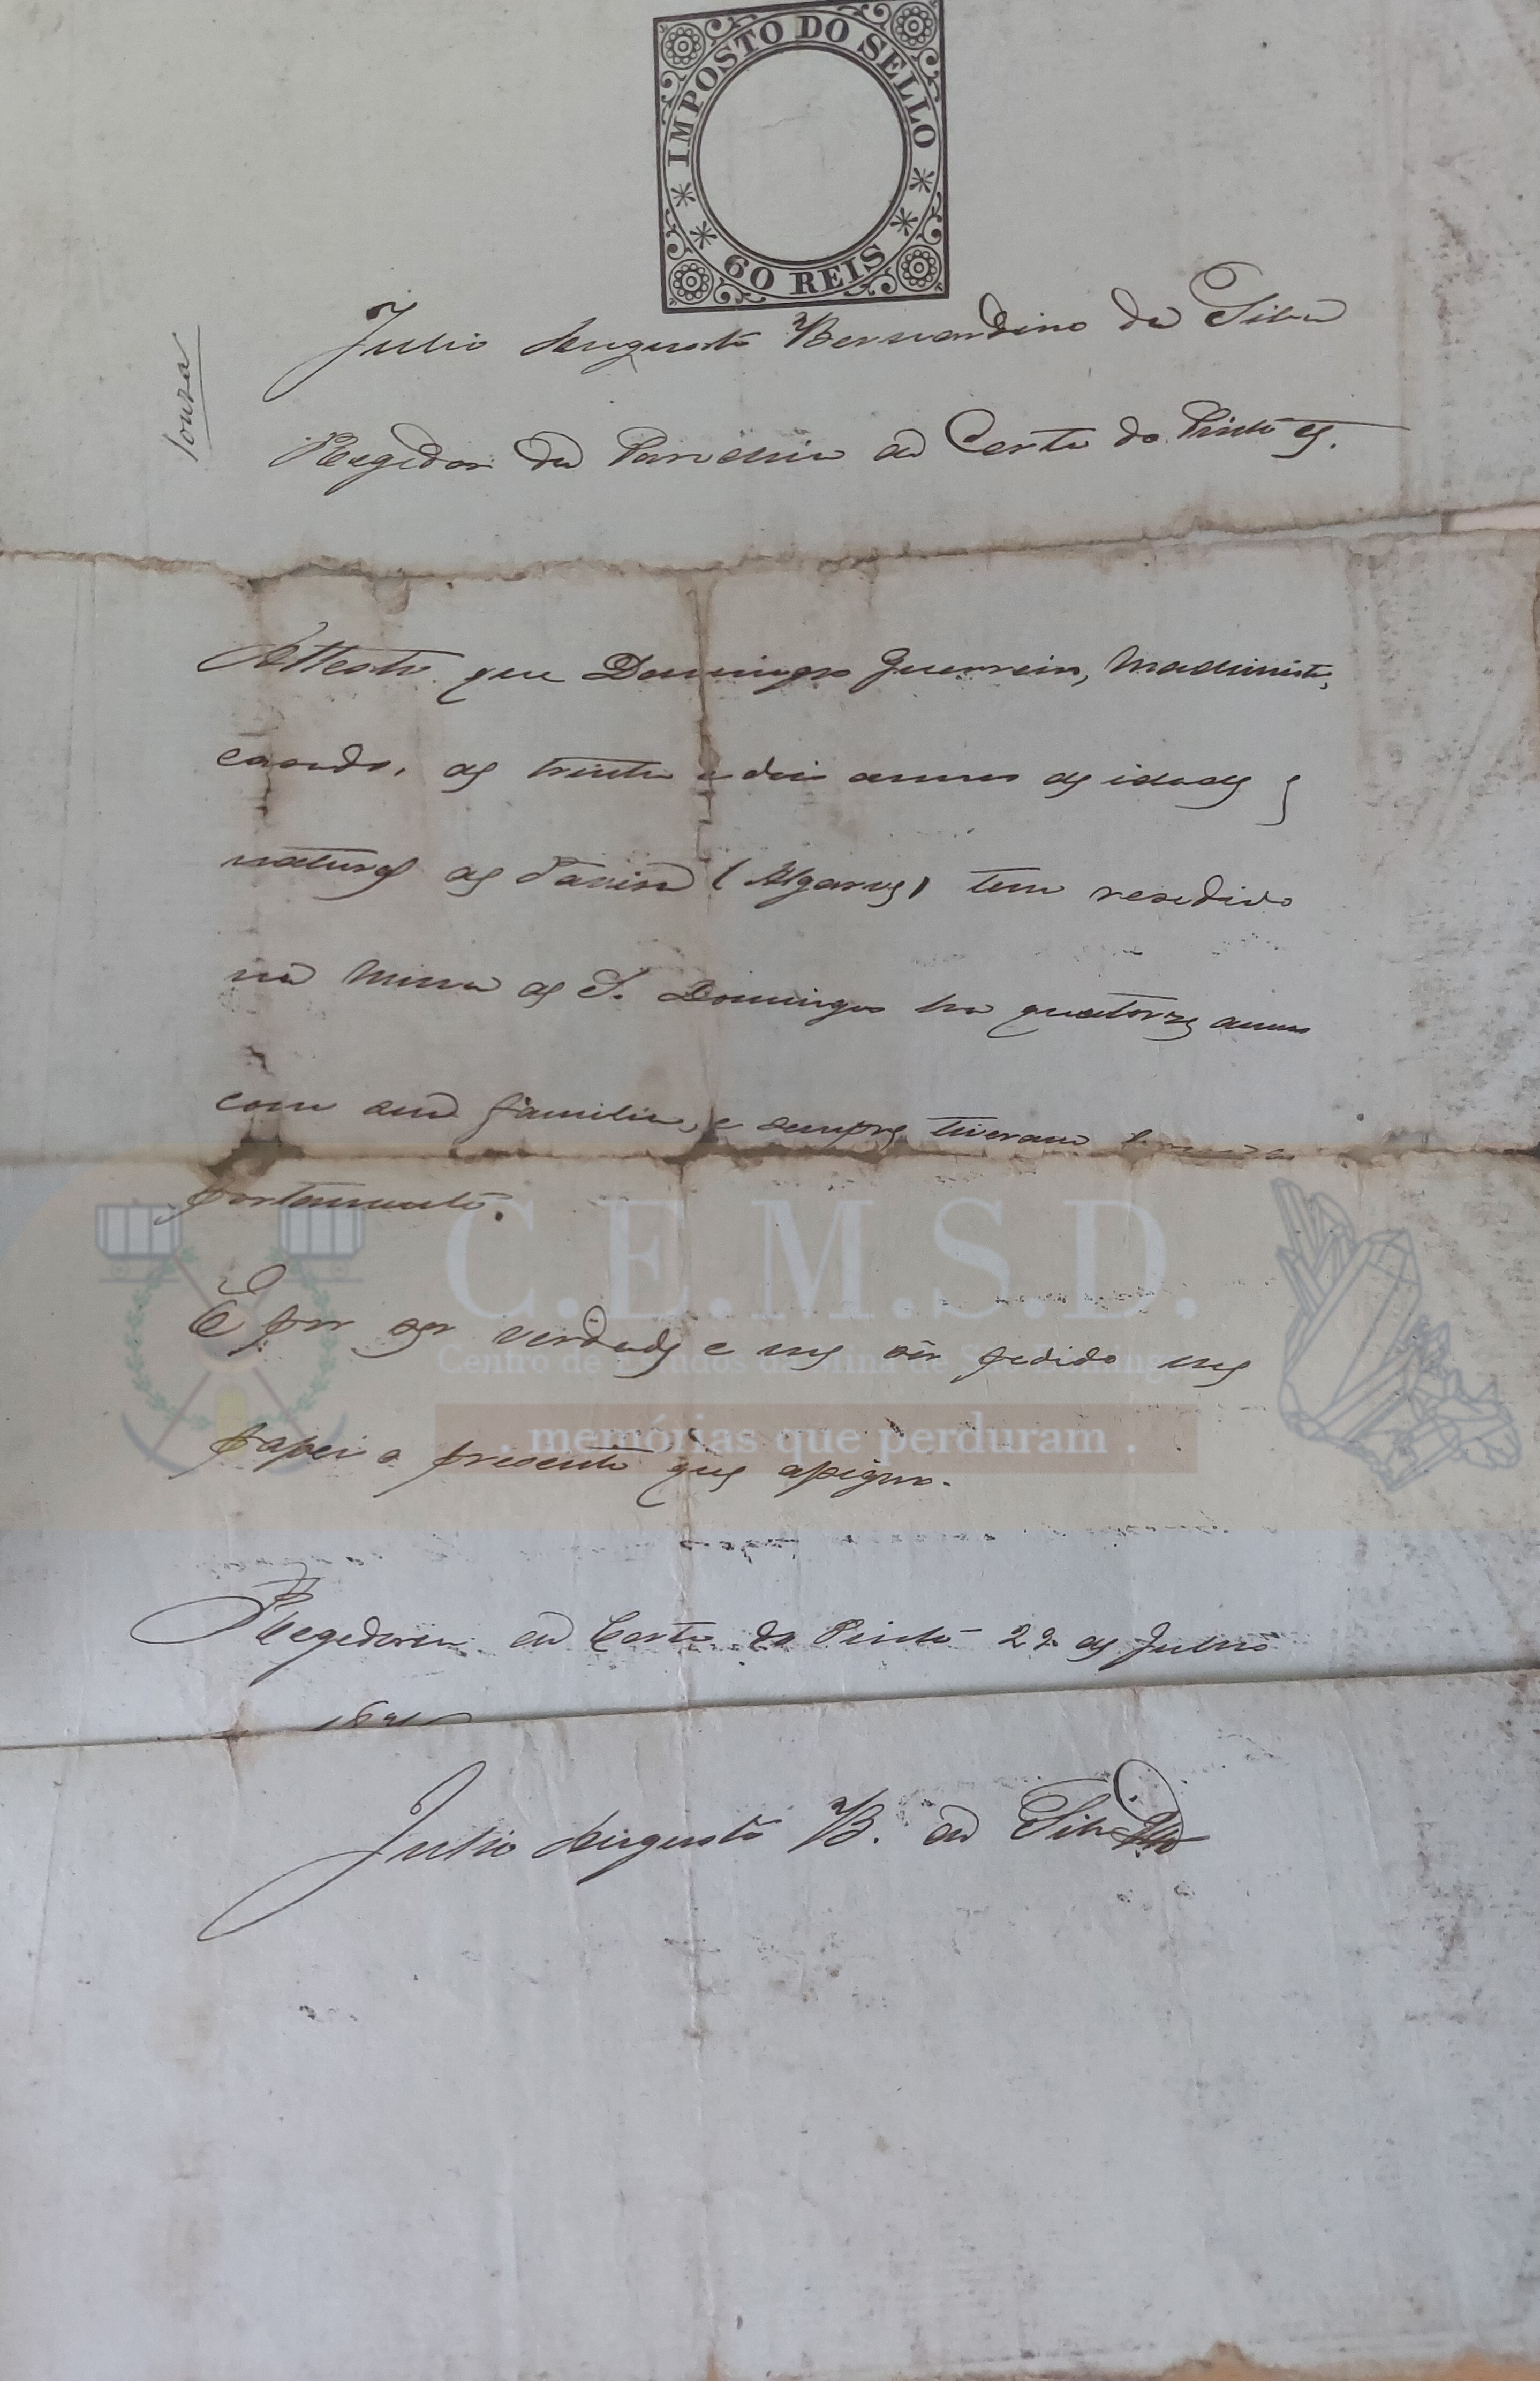 IMPOSTO DO SELLO
60 REIS
Souza
Julio Augusto Bernardino da Silva
Regedor da Parochia da Corte do Pinto &.
Attesto que Domingos Guerreiro, Machinista,
casado, de trinta e dois annos de idade,
natural de Tavira (Algarve) tem resedido
na Mina de S. Domingos ha quatorze annos
com sua familia, e sempre tiveram
portamento.
E por ser verdade e me ser pedido me
passei o presente que assigno.
Regedoria da Corte do Pinto 29 de Julho
Julio Augusto B. da Silva
C.E.M.S.D.
Centro de Estudos da Mina de São Domingos
. memórias que perduram .